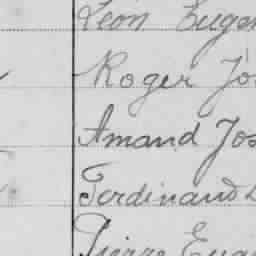 Léon Eugen
Roger Jo
Amand Jos
Ferdinand
Pierre Eug